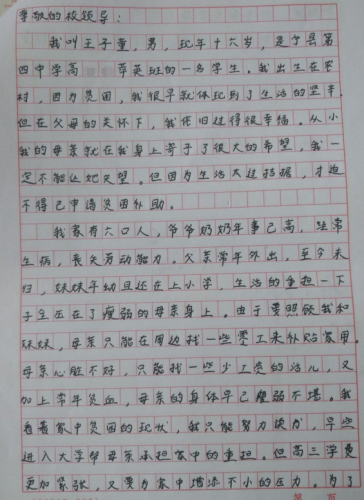 尊敬的校领导：
我叫王子童，男，现年十六岁，是宁县第
四中学高 莘英班的一名学生。我出生在农
村，因为贫困，我很早就体现到了生活的坚辛
但在父母的关怀下，我依旧过得很幸福。从小
我的母亲就在我身上寄予了很大的希望，我一
定不能让她失望。但因为生活太过拮据，才迫
不得已申请贫困补助。
我家有六口人，爷爷奶奶年事已高，经常
生病，丧失劳动能力。父亲常年外出，至今未
归，妹妹年幼且还在上小学，生活的重担一下
子全压在了瘦弱的母亲身上。由于要照顾我和
妹妹，母亲只能在周边找一些零工来补贴家用。
母亲心脏不好，只能找一些少工资的活儿，又
加上常年贫血，母亲的身体早已瘦弱不堪。我
看着家中贫困的现状，我只能努力读书，早些
进入大学帮母亲承担家中的重担。但高三学费
更加紧张，又要为家中增添不小的压力。为了
第 页